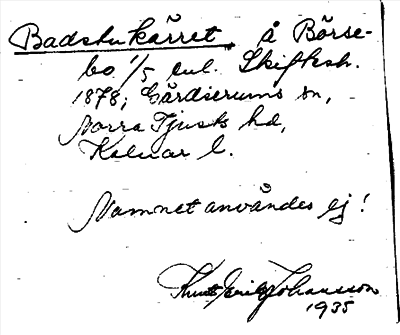 Badstukärret, å Börse-
bo 1/5 enl. Skifksh.
1878; Gärdserums sn,
Norra Tjusts hd,
Kalmar l.
Namnet användes ej!
Knut Erik Johansson
1935